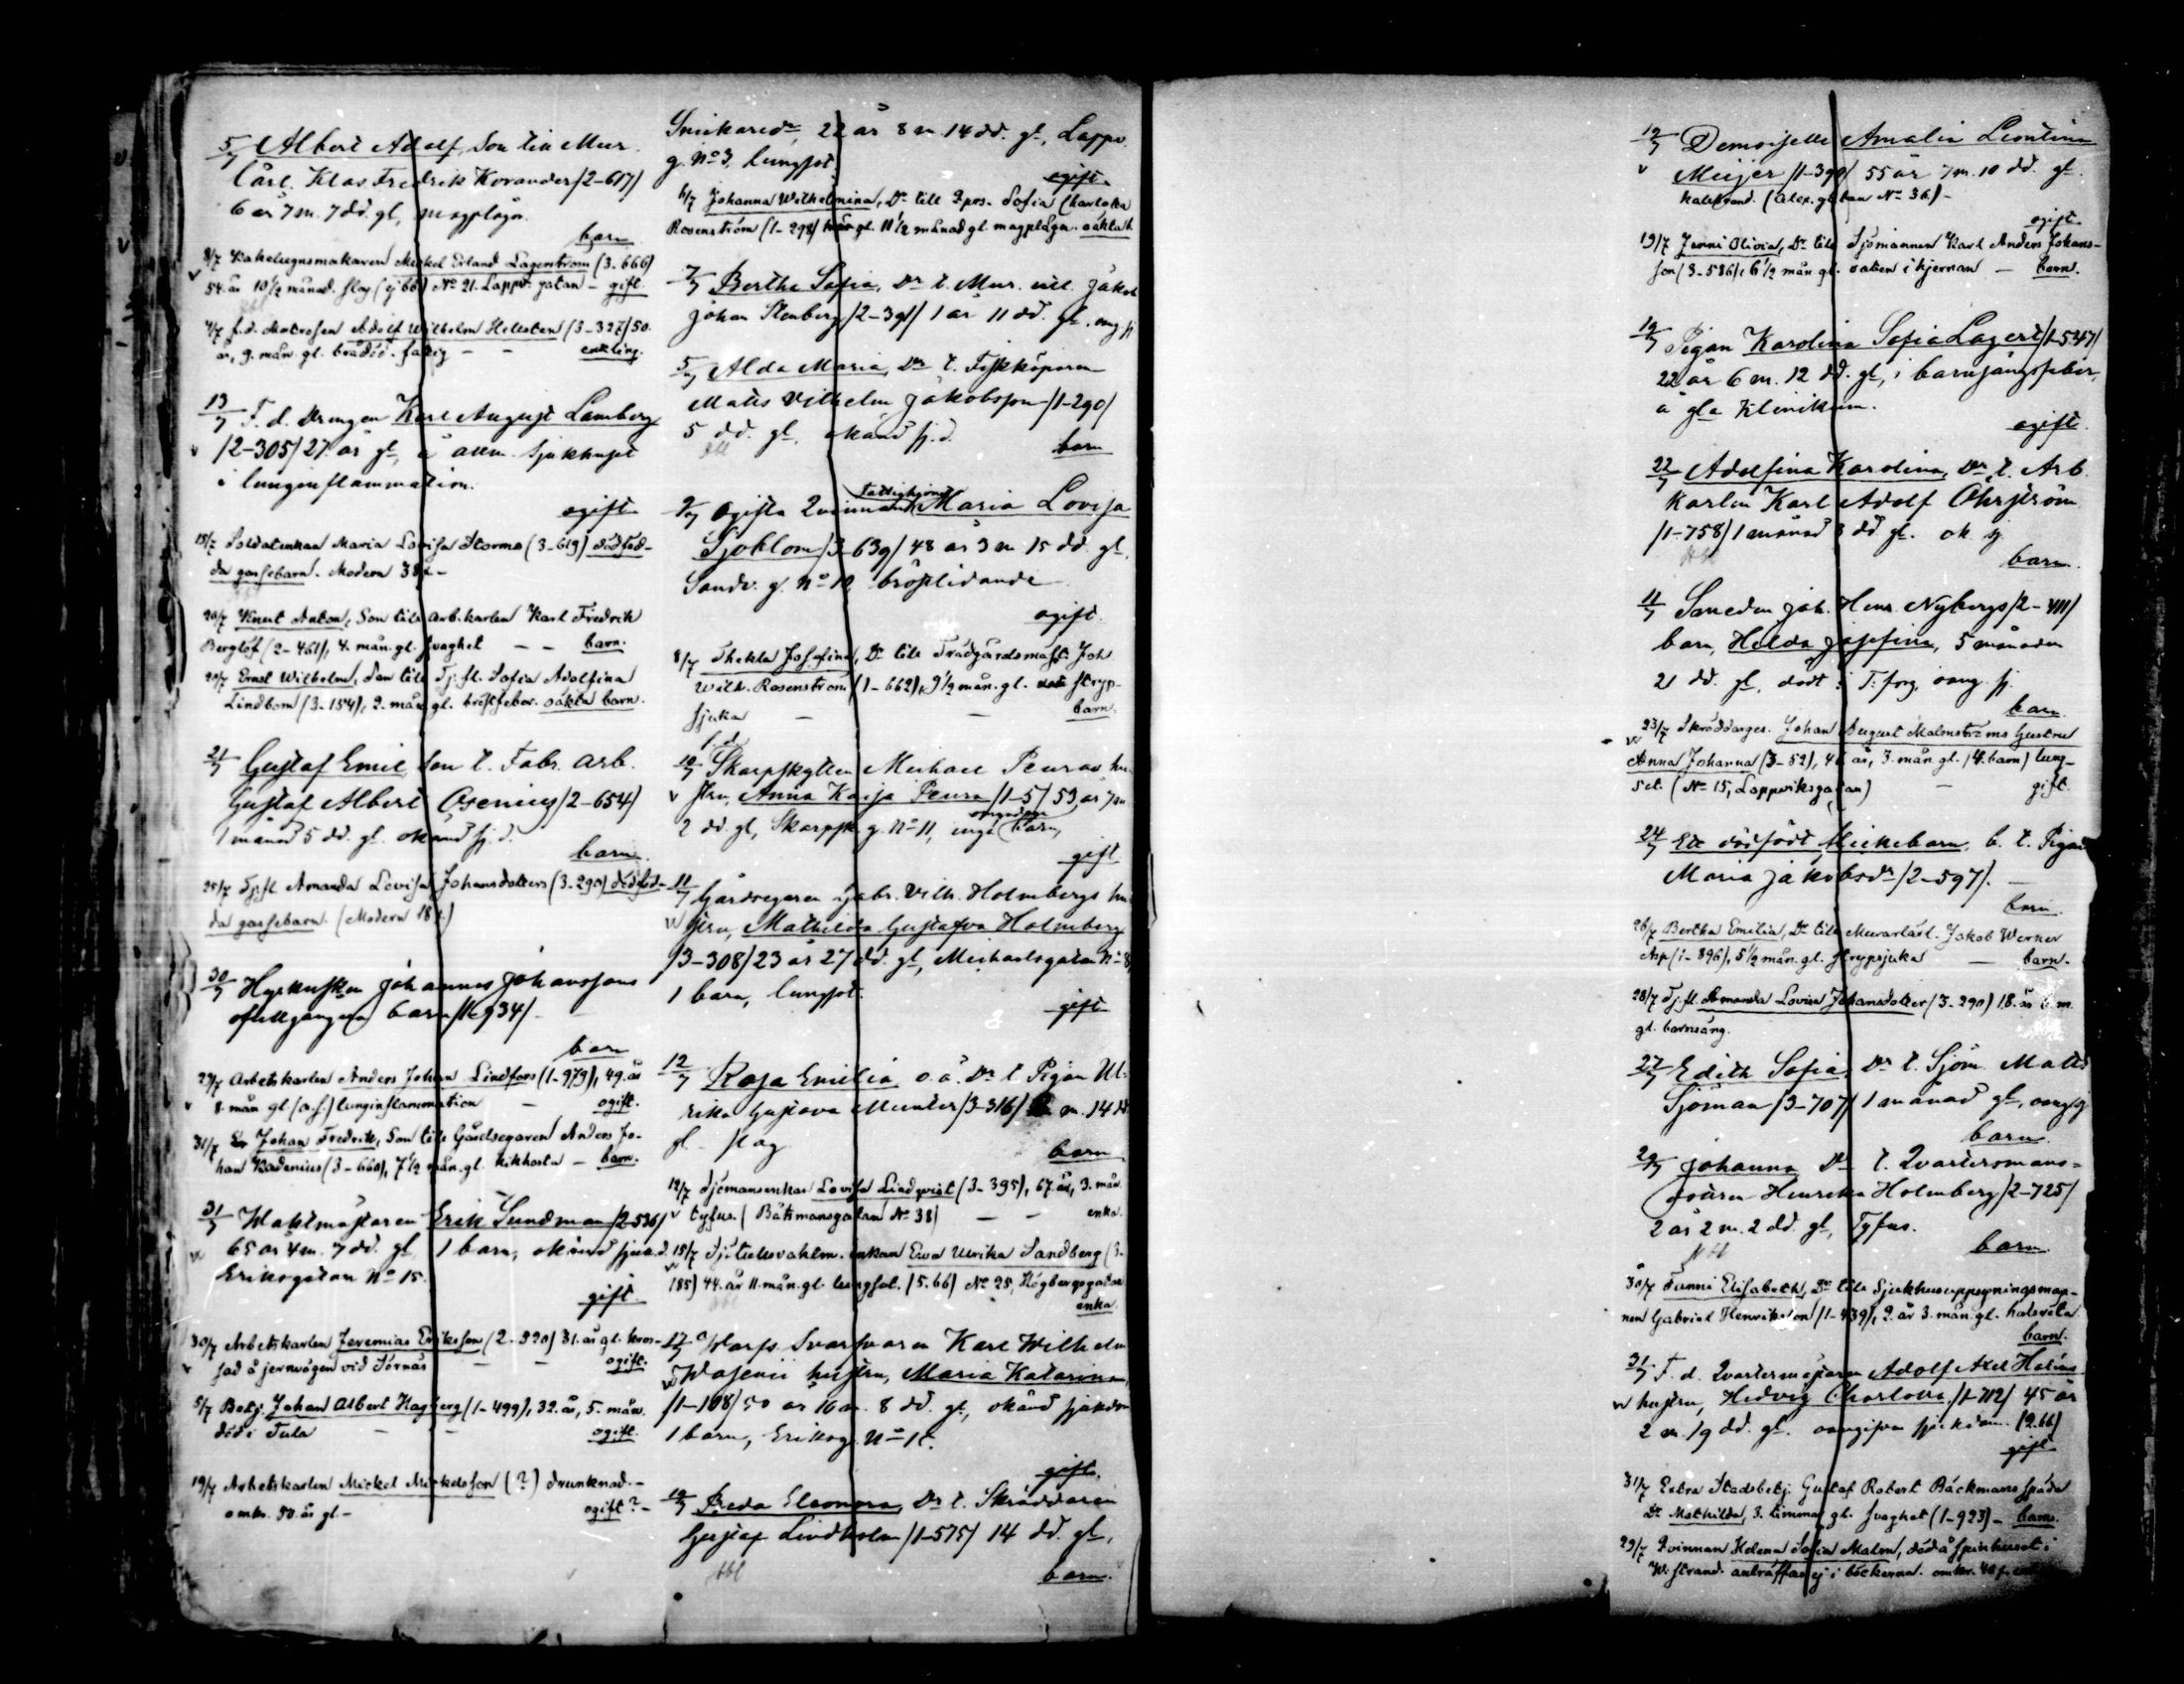 5/7 Albert Adolf, Son till Mur.
lärl. Klas Fredrik Korander /2-617/
6 år 7 m. 7 dd. gl, magplågn.
barn
8/7 Kakelugnsmakaren Mickel Erland Lagerström (3-666)
54 år 10 1/2 månad. slag (ej 66) No 21. Lappv. gatan - gift.
4/7 f.d. Matrosen Adolf Wilhelm Hellsten (3-327) 50.
år, 9. mån. gl. bråddöd. fattig - - enkling.
13/7 F. d. Drengen Karl August Lamberg
/2-305/ 27 år gl, å allm. Sjukhuset
i lunginflammation.
ogift
18/7 Soldatenkan Maria Lovisa Storms (3-619) dödföd-
da gossebarn. Modern 38 -
20/7 Knut Anton, Son till arb.karlen Karl Fredrik
Berglöf (2-461), 4. mån. gl. svaghet - - barn.
20/7 Ernst Wilhelm, Son till Tj. fl. Sofia Adolfina
Lindbom (3-154), 2. mån gl. bröstfeber. oäkta barn.
21/7 Gustaf Emil, Son t. Fabr. Arb.
Gustaf Albert Osenius /2-654/
1 månad 5 dd. gl. okänd sj. d.
barn.
25/7 Tj. fl. Amanda Lovisa Johansdotters (3-290) dödföd-
da gossebarn. (Modern 18)
30/7 Hyrkusken Johannes Johanssons
barn /1-934/
barn
29/7 Arbetskarlen Anders Johan Lindfors (1-979), 49. år
8. mån gl (a.s.) lunginflammation - ogift.
31/7 Johan Fredrik, Son till Gårdsegaren Anders Jo-
han Kadenius (3-660), 7 1/2 mån. gl. kikhosta - barn.
31/7 Waktmästaren Erik Sundman /2-536/
65 år 4 m. 7 dd. gl, 1 barn, okänd sjukd.
Eriksgatan No 15.
gift.
30/7 Arbetskarlen Jeremias Eriksson (2-990) 31. år gl. kros-
sad å jernvägen vid Sörnäs - - ogift.
5/7 Betj. Johan Albert Hagberg (1-499), 32. år, 5. mån.
död i Tula - - ogift.
19/7 Arbetskarlen Mickel Mickelsson (?) drunknad. -
omkr. 50. år gl. - ogift? -
Snickaredr 22 år 8 m. 14 dd. gl, Lappv.
g. No 3, lungsot.
ogift
6/7 Johanna Wilhelmina, Dr till Qpers. Sofia Charlotta
Rosenström (1-298) gl. 11 1/2 månad gl. magplågn. oäkta b.
7/7 Bertha Sofia, Dr t. Mur. Jakob
Johan Stenberg /2-391/ 1 år 11 dd. gl. sj
5/7 Alda Maria, Dr t. Fiskköparen
Matts Vilhelm Jakobsson /1-290/
5 dd. gl, okänd sj. d.
barn
9/7 Ogifta Qvinnan Fattighjonet Maria Lovisa
Sjöblom /3-639/ 48 år 3 m 15 dd. gl,
Sandv. g. No 10, bröstlidande
ogift.
8/7 Thekla Josefina, Dr till Trädgårdsmäst. Joh
Wilh. Rosenström (1-662), 9 1/2 mån. gl. stryp-
sjuka - - barn.
10/7 f.d. Skarpskytten Michael Peuras hu-
stru, Anna Kaisa Peura /1-5/ 53 år 7 m
2 dd. gl, Skarpsk. g. No 11, inga omyndiga barn,
gift.
11/7 Gårdsegaren Gabr. Vilh. Holmbergs hu-
stru, Mathilda Gustafva Holmberg
/3-308/ 23 år 27 dd. gl, Michaelsgatan No 8,
1 barn, lungsot.
gift
12/7 Rosa Emilia, o. ä. Dr t Pigan Ul-
rika Gustava Munter /3-316/ m. 14 dd
gl. slag
barn
12/7 Sjömansenkan Lovisa Lindqvist (3-395), 67. år, 3. mån.
tyfus. (Båtsmansgatan No 38) - - enka.
15/7 enkan Ewa Ulrika Sandberg (3-
185) 44. år 11. mån. gl. lungsot. (5.66) No 25, Högbergsgatan
enka.
17/7 Svarfvaren Karl Wilhelm
Wasenii hustru, Maria Katarina,
/1-108/ 50 år 10 m. 8 dd. gl, okänd sjukdom
1 barn, Eriksg. No 15.
gift.
19/7 Freda Eleonora, Dr t. Skräddaren
Gustaf Lindholm /1-575/ 14 dd. gl.
barn.
19/7 Demoiselle Amalia Leontina
Meijer /1-390/ 55 år 7 m. 10 dd. gl.
Kallbrand. (Alex. gatan No 36) -
ogift
19/7 Jenni Olivia, Dr till Sjömannen Karl Anders Johans-
son (3-586), 6 1/2 mån gl. vatten i hjernan - barn.
19/7 Pigan Karolina Sofia Lagert /1-547/
22 år 6 m. 12 dd. gl, i barnsängsfeber,
å gla Klinikum.
ogift.
22/7 Adolfina Karolina, Dr t. Arb.
Karlen Karl Adolf Öhrström
/1-758/ 1 månad 3 dd. gl. ok sj.
barn.
11/7 Smeden Joh. Henr. Nybergs /2-411/
barn, Helda Josefina, 5 månader
21 dd. gl, dödt i T:fors, sj.
barn
23/7 Skräddarges. Johan August Malmströms hustru
Anna Johanna (3-52), 4 år, 3. mån. gl. (4. barn) lung-
sot. (No 15, Lappviksgatan) - gift.
24/7 Ett dödfödt flickebarn, b. t. Pigan
Maria Jakobsdr /2-597/. -
barn.
26/7 Bertha Emilia, Dr till Murarlärl. Jakob Werner
Asp (1-896), 5 1/2 mån. gl. strypsjuka - barn.
28/7 Tj. fl. Amanda Lovisa Johansdotter (3-290) 18. år 6. m.
gl. barnsäng.
27/7 Edith Sofia, Dr t. Sjöm. Matts
Sjöman /3-707/ 1 månad gl,
barn.
29/7 Johanna Dr t. Qvartersmans-
Henrika Holmberg /2-725/
2 år 2 m. 2 dd. gl, Tyfus.
barn
30/7 Fanni Elisabeth, Dr till Sjukhusuppsyningsman-
nen Gabriel Henriksson (1-439), 2. år 3. mån. gl. halsröta
barn.
31/7 F. d. Qvartermästaren Adolf Axel
hustru, Hedvig Charlotta /1-712/ 45 år
2 m. 19 dd. gl. oangifven sjukdom. (2.66)
gift
31/7 Extra Stadsbetj. Gustaf Robert Bäckmans späda
Dr Mathilda, 3. timmar gl. svaghet (1-923) - barn.
29/7 Qvinnan Helena Sofia Malm, död å spinhuset i
W:strand. anträffas ej i böckerna. omkr. 40